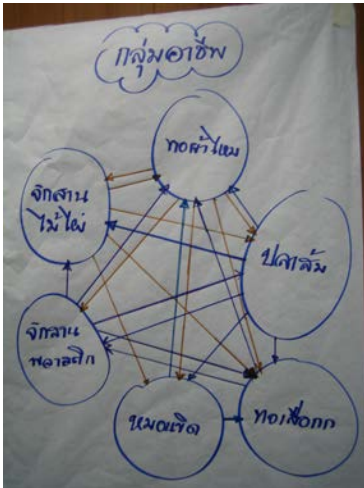 กลุ่มอาชีพ
ทอผ้าไหม
จักสาน
ไม้ไผ่
ปลาส้ม
จักสาน
พลาสติก
หมอนขิด
ทอเสื่อกก